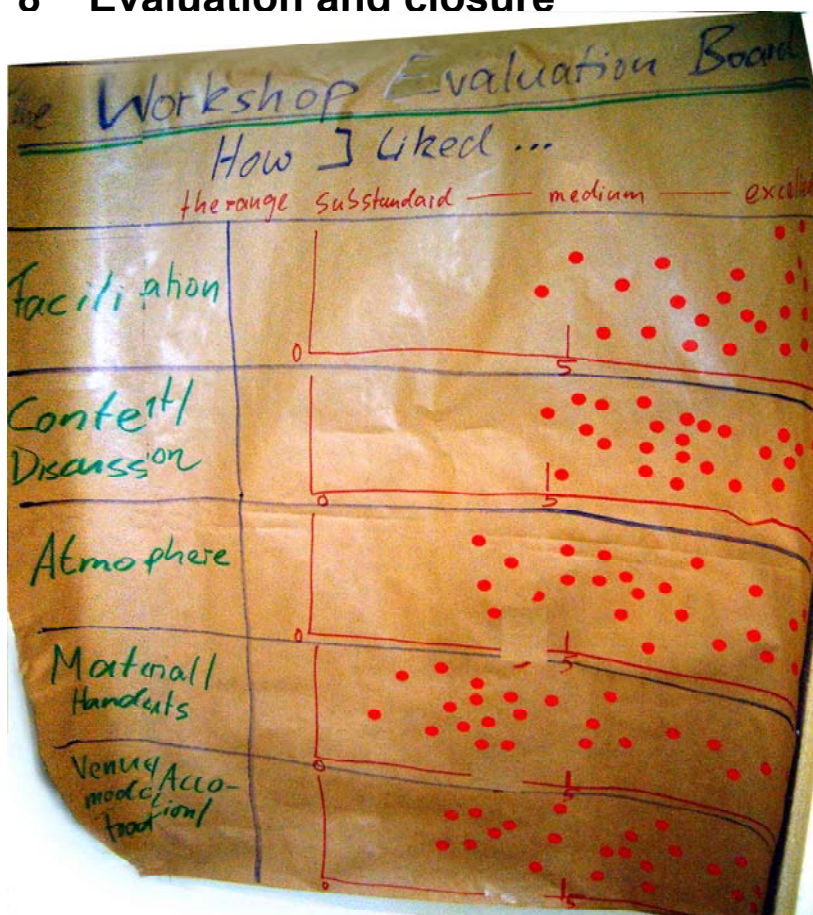 8 Evaluation and closure
The Workshop Evaluation Board
How I liked ...
the range substandard — medium — excelle
Facilitation
0 5
Content/
Discussion
0 5
Atmophere
0 5
Material/
Handouts
0 5
Venue/Acco-
modation/
0 5